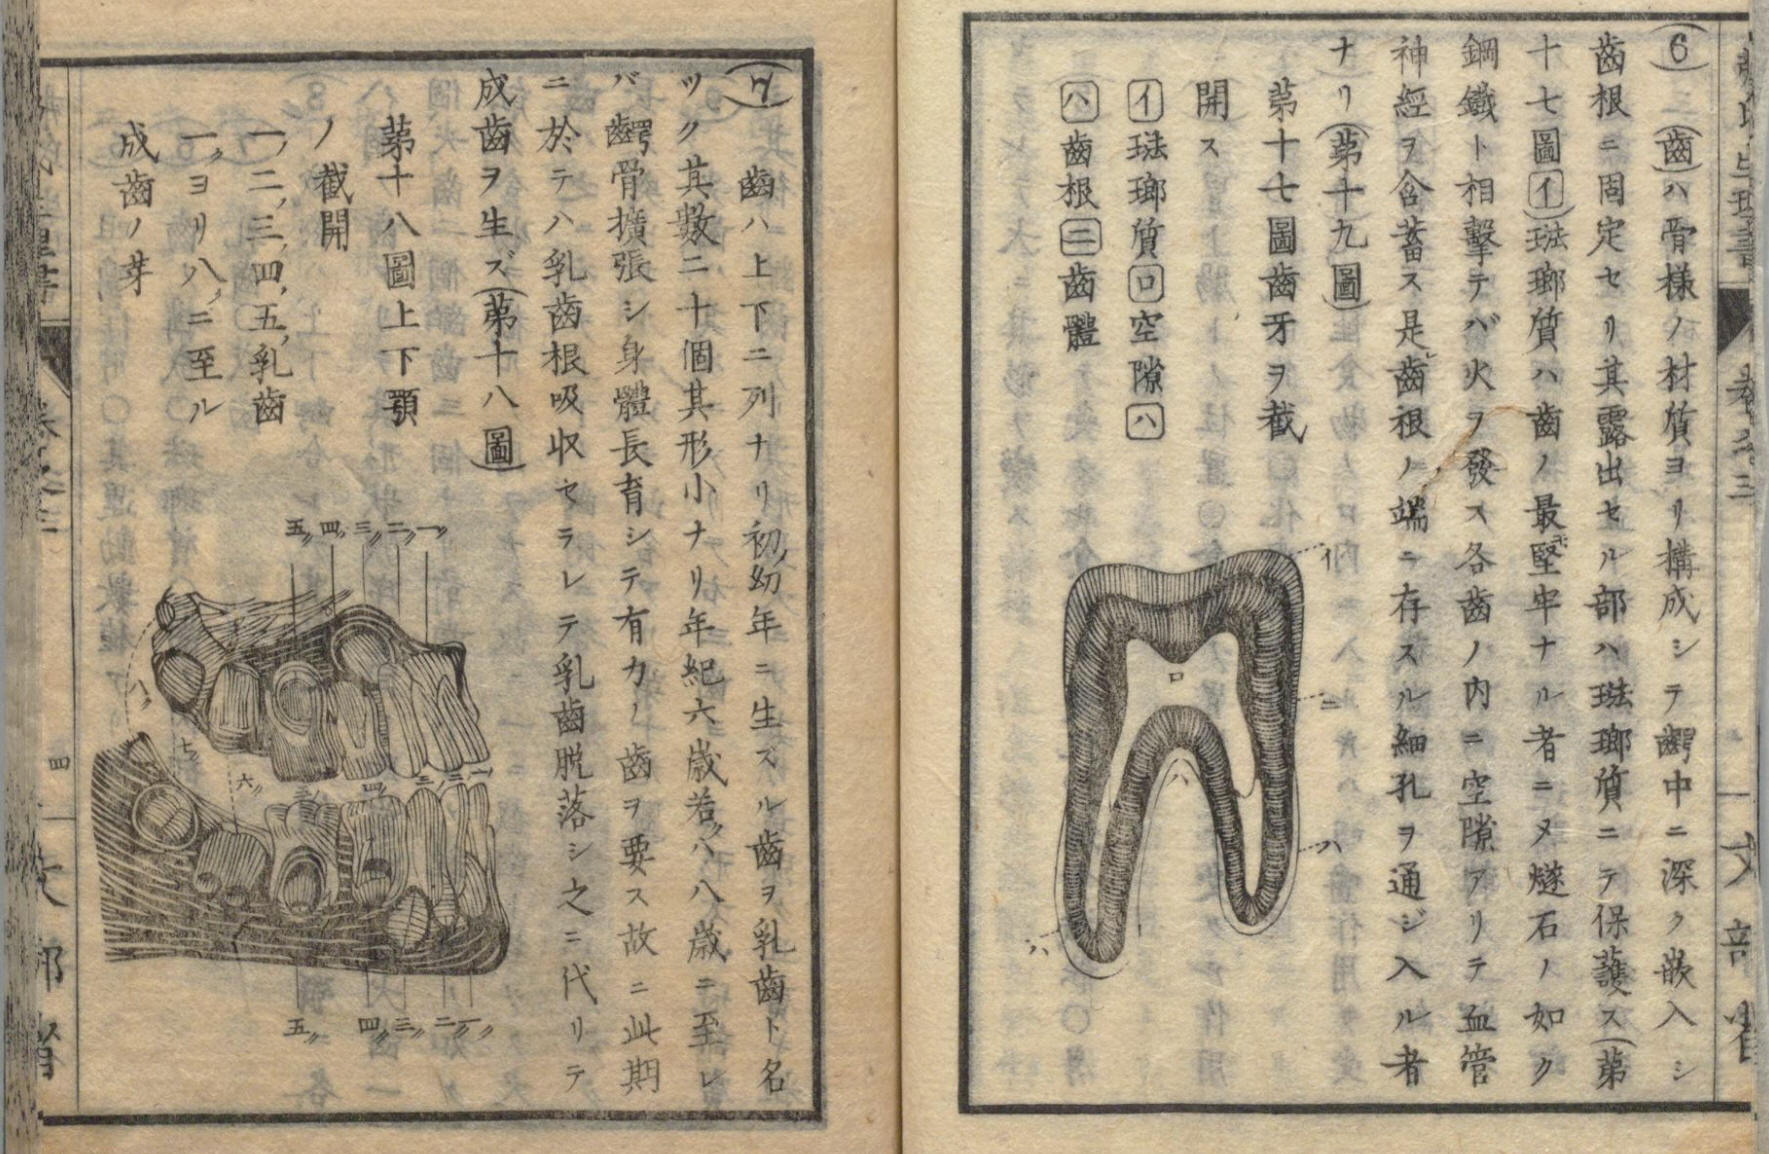 (6)(齒)ハ骨樣ノ材質ヨリ構成シテ齶中ニ深ク嵌入シ
齒根ニ固定セリ其露出セル部ハ琺瑯質ニテ保護ス(苐
十七圖イ)琺瑯質ハ齒ノ最モ堅牢ナル者ニヌ燧石ノ如ク
鋼鐵ト相擊テバ火ヲ發ス各齒ノ内ニ空隙アリテ血管
神經ヲ含蓄ス是レ齒根ノ端ニ存スル細孔ヲ通ジ入ル者
ナリ(苐十九圖)
苐十七圖齒牙ヲ截
開ス
イ琺瑯質ロ空隙ハ
ハ齒根ニ齒體
イ
ロ
ニ
ハ
ハ
ハ
(7)齒ハ上下ニ列ナリ初メ幼年ニ生ズル齒ヲ乳齒ト名
ツク其數二十個其形小ナリ年紀六歳若クハ八歳ニ至レ
バ齶骨擴張シ身體長育シテ有力ノ齒ヲ要ス故ニ此期
ニ於テハ乳齒根吸収セラレテ乳齒脱落シ之ニ代リテ
成齒ヲ生ズ(苐十八圖)
苐十八圖上下顎
ノ截開
一,二,三,四,五,乳齒
一〃ヨリ八〃ニ至ル
成齒ノ芽
五〃四〃三〃二〃一〃
八〃
七〃
六〃
五〃四〃三〃二〃一〃
四
文部省